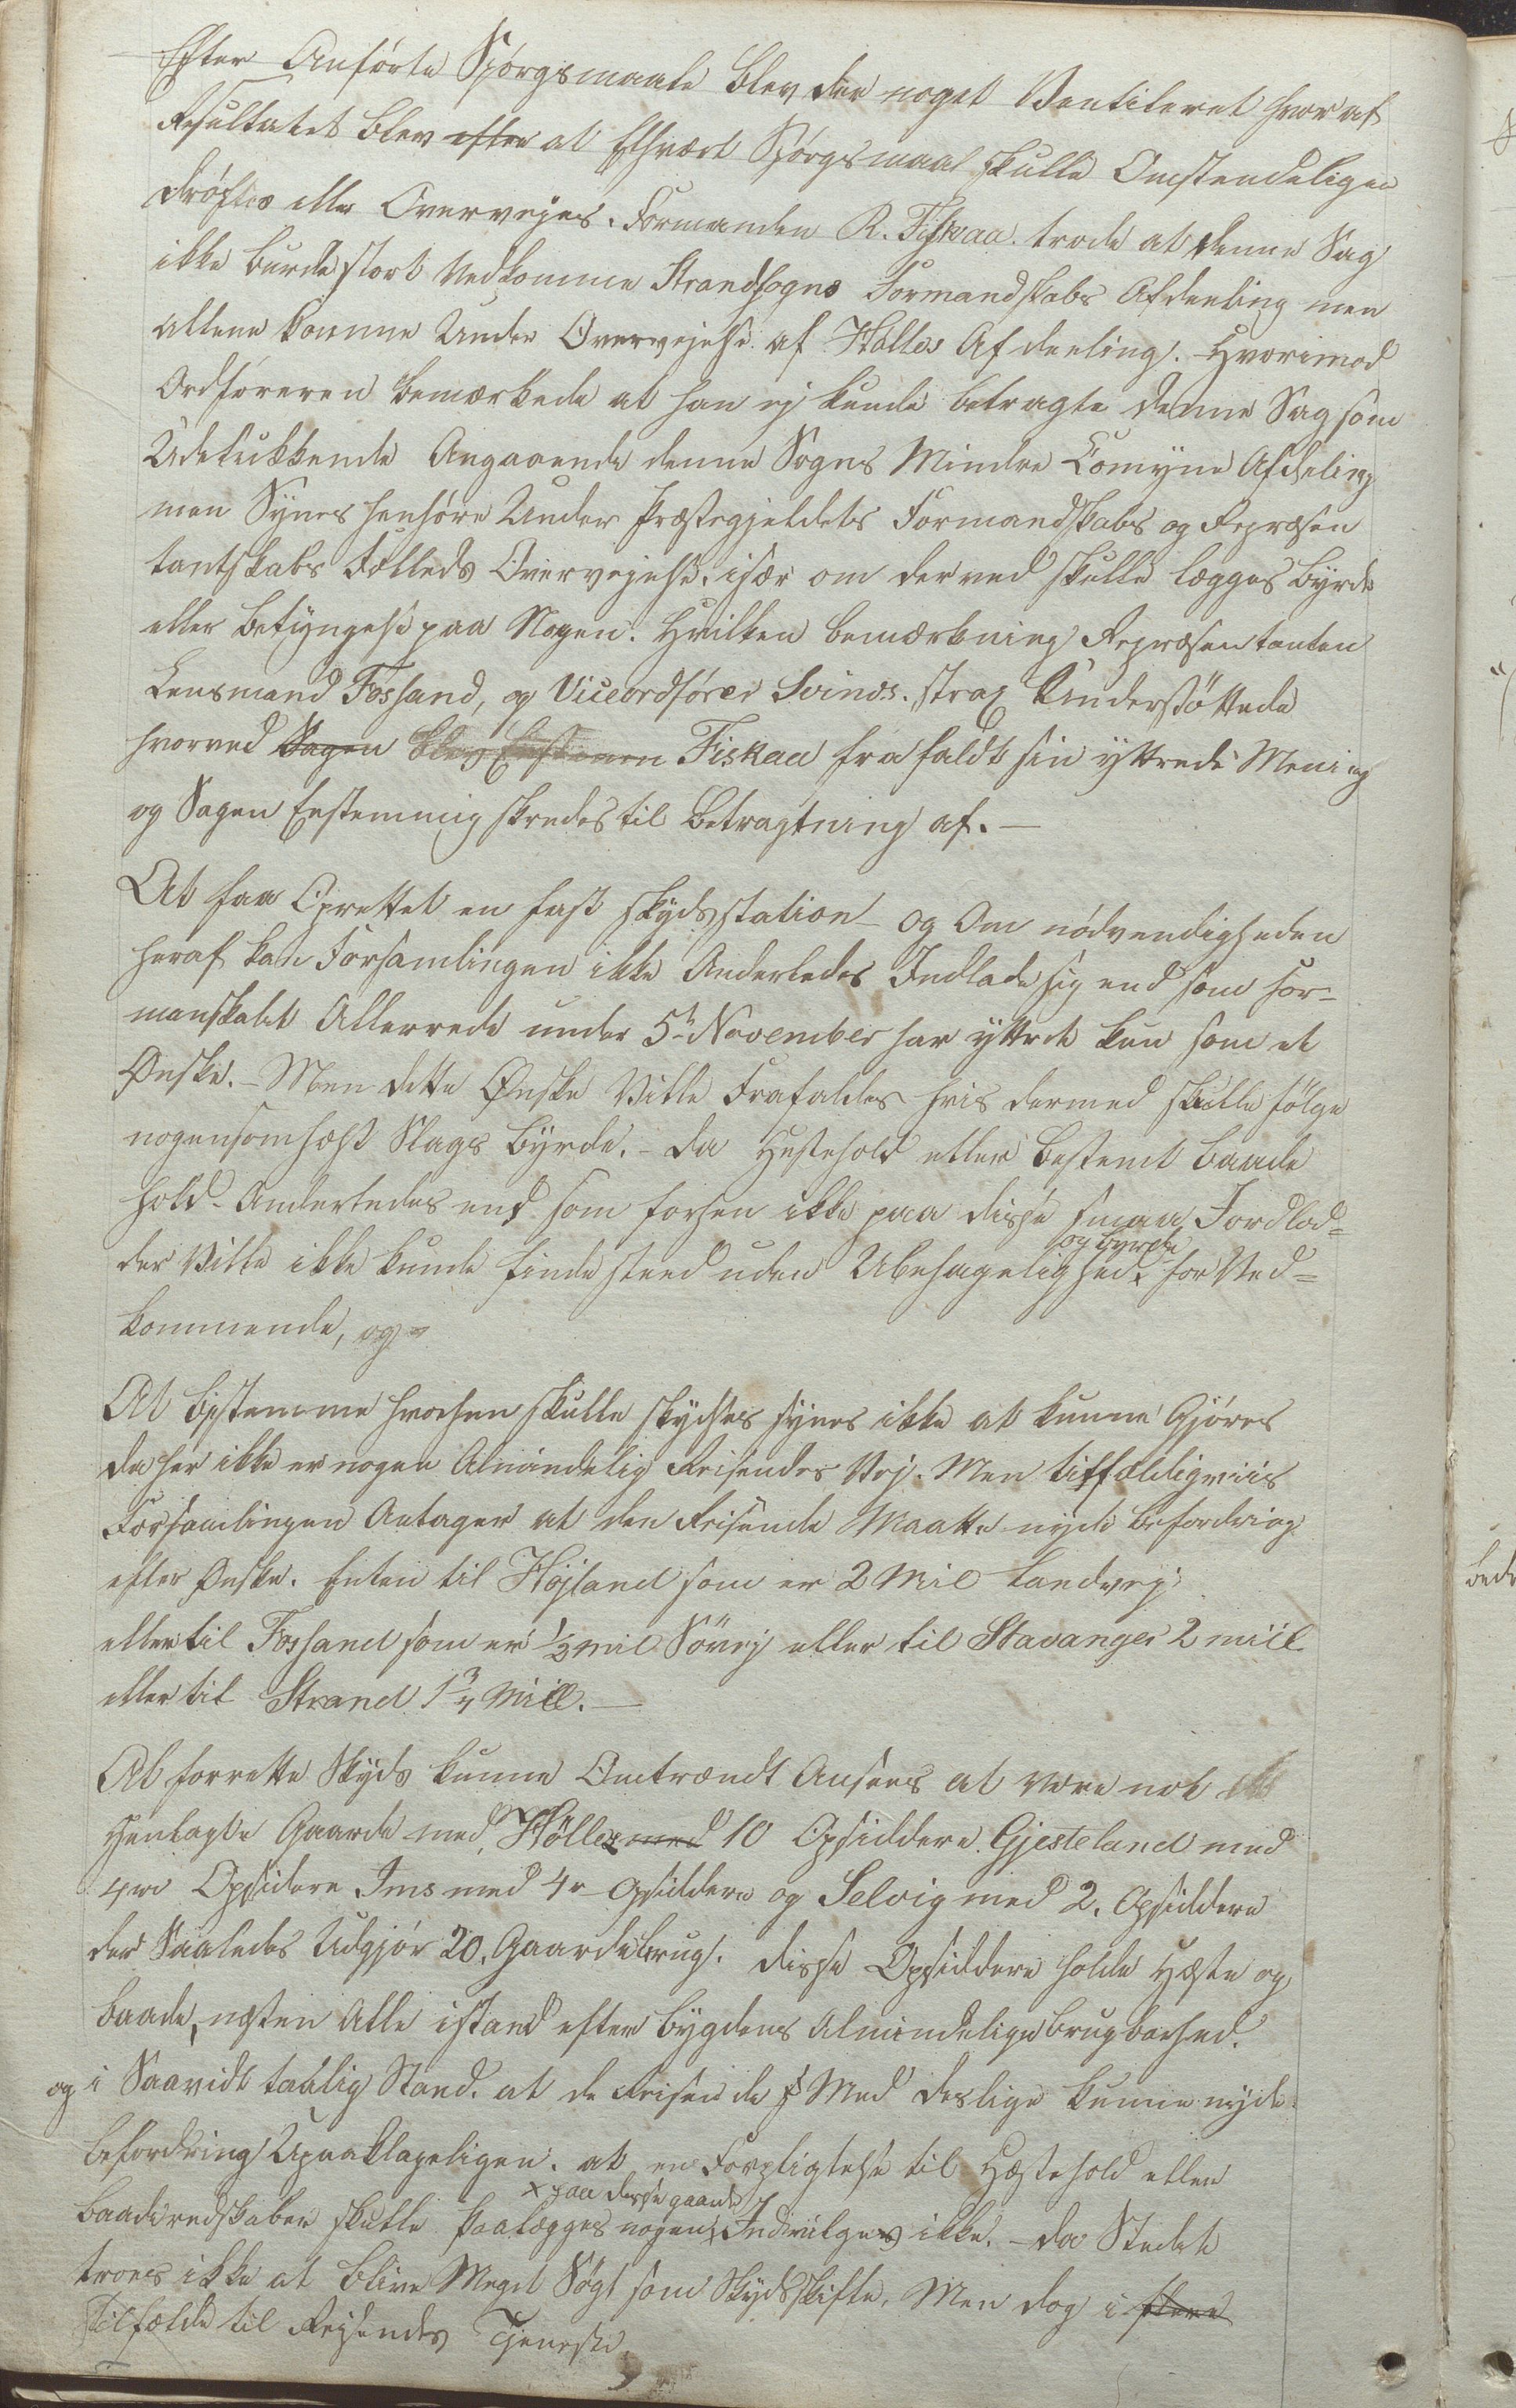 Efter Anførte Spørgsmaale blev der noget Ventileret hvoraf
Resultatet blev efter at Ethvært Spørgsmaal skulle Omstendeligen
drøftes eller Overvejes. Formanden R. Fiskaa. trode at denne Sag
ikke burde stort Vedkomme Strandsogns Formandskabs Afdeeling men
allene komme Under Overvejelse af Hølles Afdeeling. Hvorimod
Ordføreren bemærkede at han ej kunde betragte denne Sag som
Udelukkende Angaaende denne Sogns Mindre Comyne Afdeling
men Synes henhøre Under Præstegjeldets Formandskabs og Repræsen
tantskabs Fælleds Overvejelse. især om derved skulle lægges Byrde
eller betyngelse paa Nogen. Hvilken bemærkning Repræsentanten
Lensmand Fossand, og Viceordfører Svinds. strax Understøttede
hvorved Sagen blev Fiskaa frafaldt sin yttrede Mening
og Sagen Enstemmig skredes til Betragtning af. —
At faa Oprettet en fast skydsstation og Om nødvendigheden
heraf kan Forsamlingen ikke Anderledes Indlade sig end som For-
manskabet Allerrede under 5te November har yttret kun som et
Ønske. – Men dette Ønske Ville Frafaldes hvis dermed skulle følge
nogensomhelst Slags Byrde. – da Hestehold eller bestemt baade
hold Anderledes end som forhen ikke paa disse smaa Jordlod-
og byrde
der Ville ikke kunde finde sted uden Ubehagelighed for Ved-
kommende, og
At bestemme hvorhen skulle skydses synes ikke at kunne Gjøres
da her ikke er nogen Almindelig Reisendes Vej. Men tilfældigviis
Forsamlingen Antager at den Reisende Maatte nyde befordring
efter Ønske. Enten til Højland som er 2 Mil Landvej
eller til Fossand som er 1/2 Mil Søvej eller til Stavanger 2 miil
eller til Strand 1 3/4 Miil. —
At forrette Skyds kunne Omtrændt Ansees at være nok
Henlagte Gaarde med Hølle med 10 Opsiddere. Gjesteland med
4re Opsidere Ims med 4r Opsiddere og Selvig med 2. Opsiddere
der Saaledes Udgjør 20. Gaardebrug. disse Opsiddere holde Heste og
baade, nesten Alle istand efter bygdens Almindelige brugbarhed.
og i Saavidt taalig Stand. at de Reisende Med deslige kunne nyde
befordring Upaaklageligen. at en Forpligtelse til Hestehold eller
x paa disse gaarde
baadredskaber skulle paalægges nogen Indvilges ikke. – da Stedet
troes ikke at blive Meget Søgt som Skydsskifte, Men dog i flere
Tilfælde til Reisendes Tjeneste.